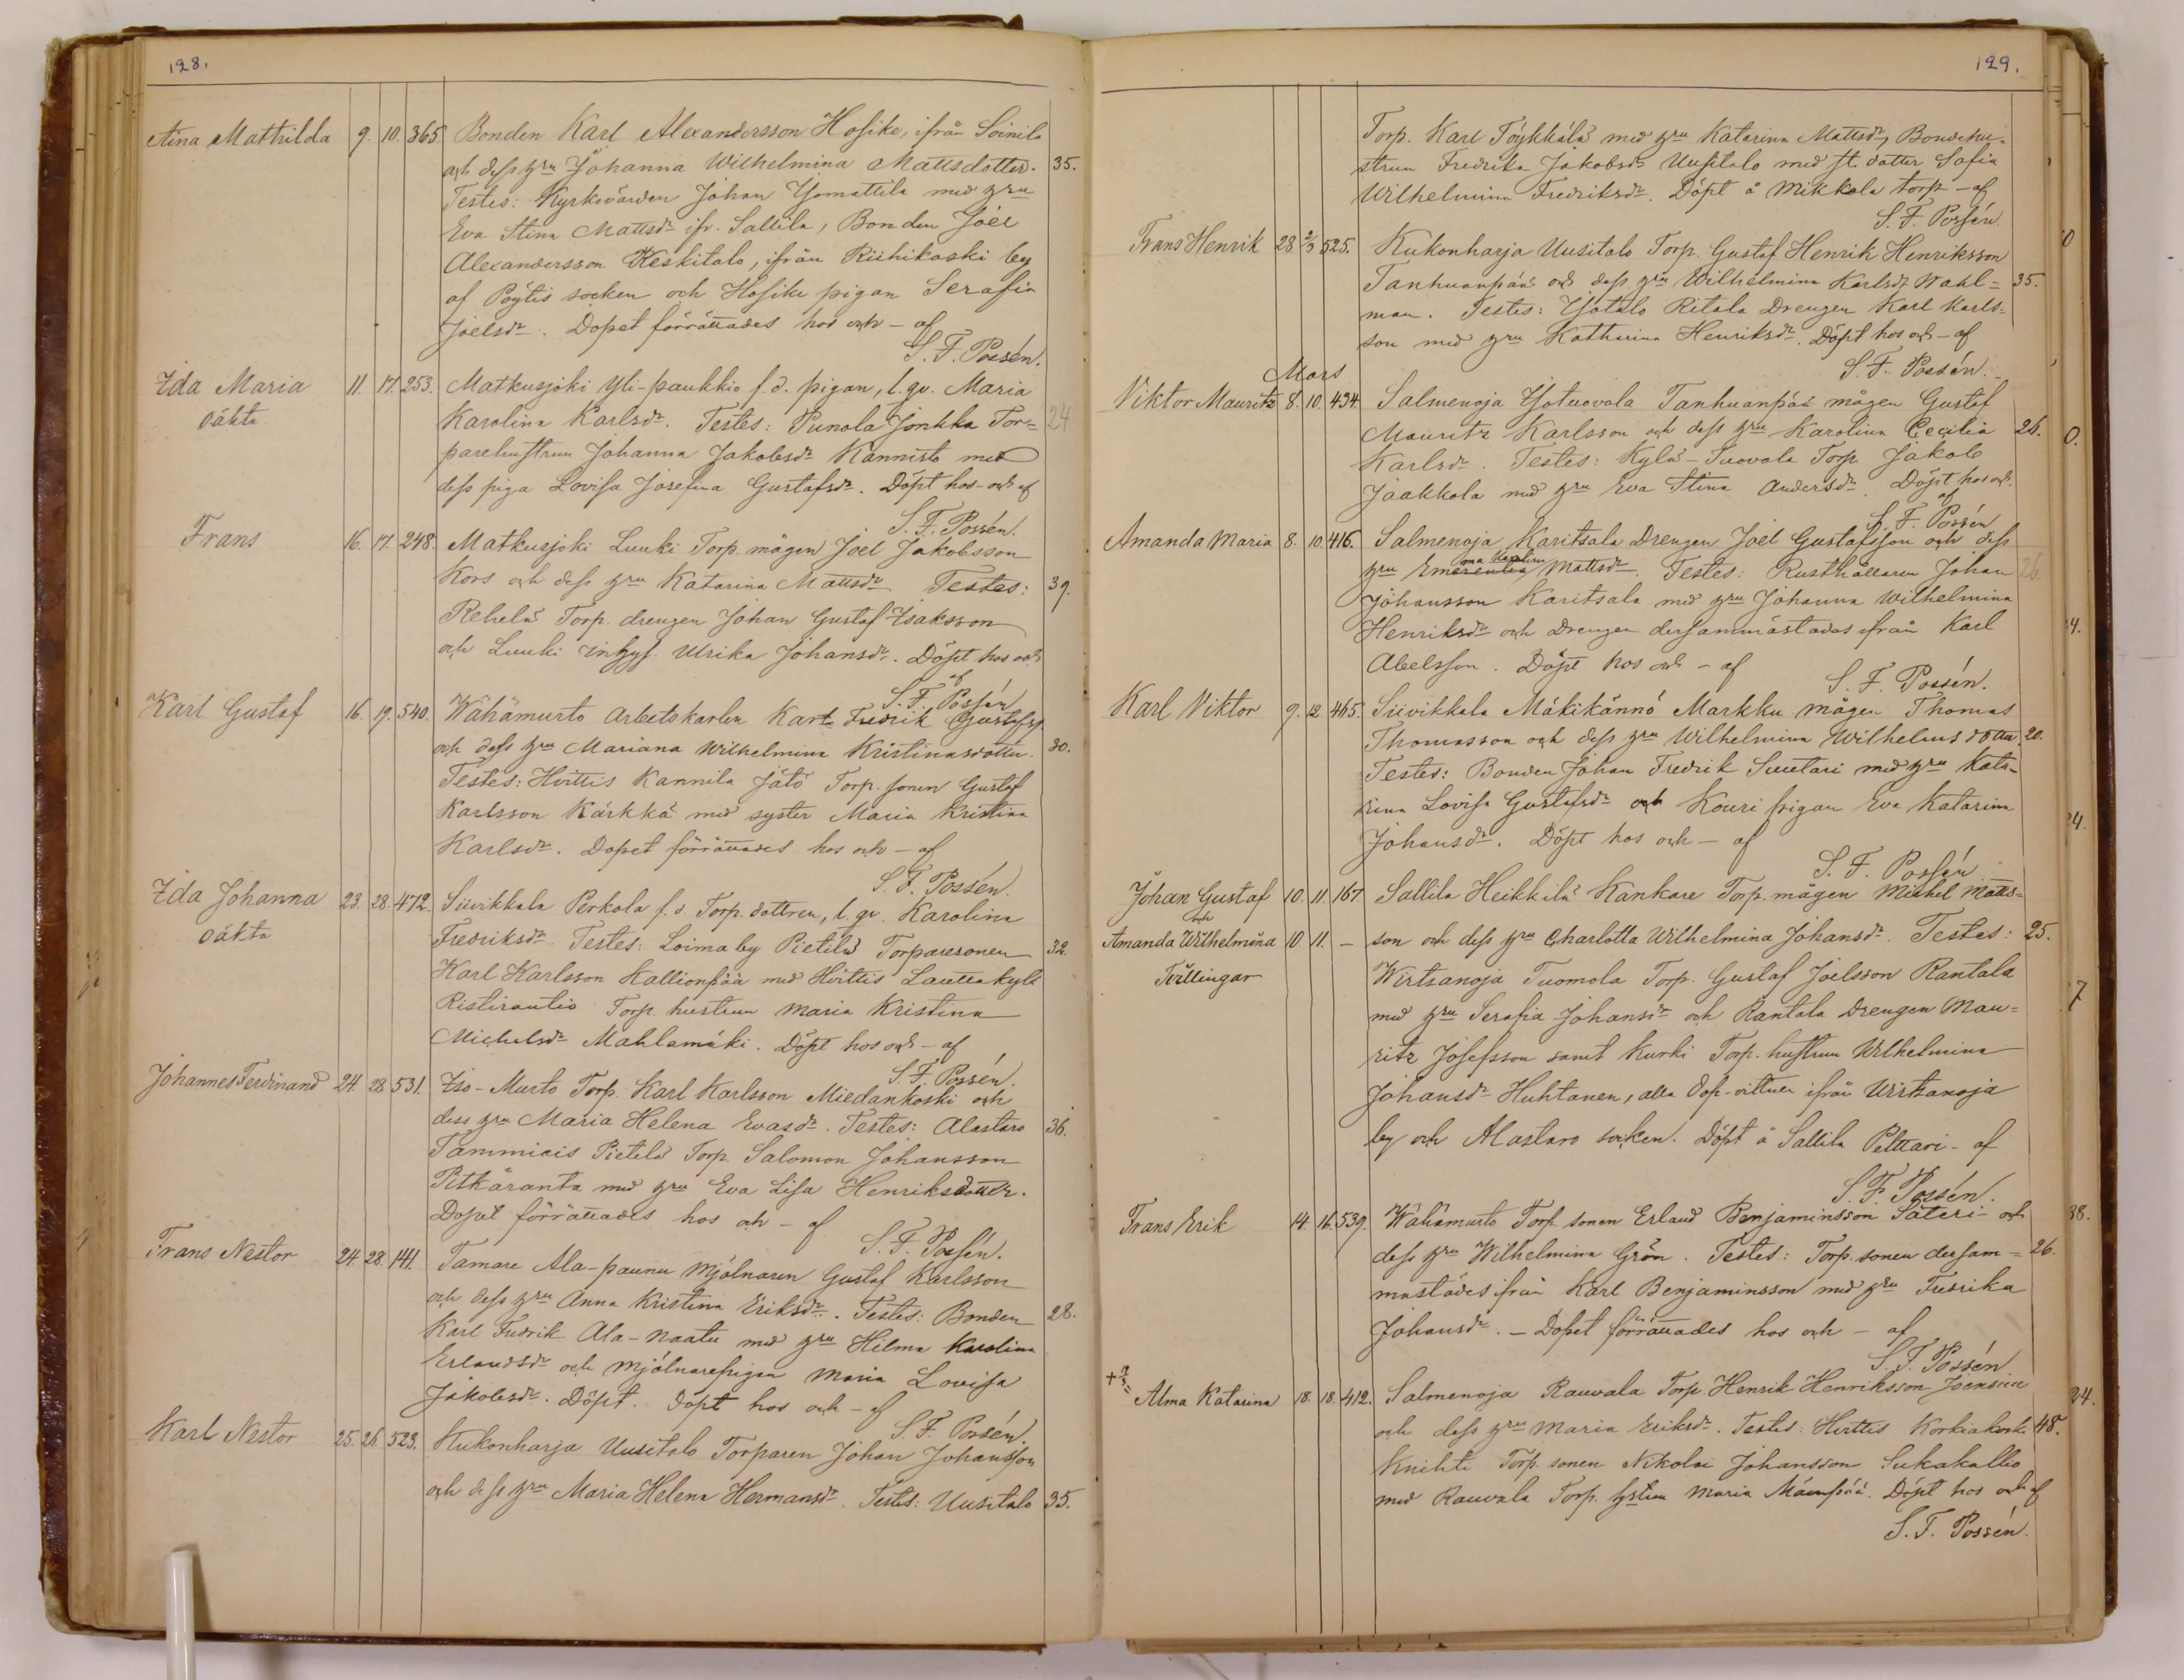 128.
Aina Mathilda 9. 10. 365. Bonden Karl Alexandersson Hosike, ifrån Soinila
och dess hru Johanna Wilhelmina Mattsdotter. 35.
Testes: Kyrkovärden Johan Yomattila med hru
Eva Stina Mattsdr ifr. Sallila, Bonden Joel
Alexandersson Keskitalo, ifrån Riihikoski by
af Pöytis socken och Hosike pigan Serafia
Joelsdr. Dopet förrättades hos och – af
S. F. Possén.
Ida Maria 11. 17. 253. Matkusjoki Yli-paukkio f.d. pigan, l. qv. Maria
oäkta Karolina Karlsdr. Testes: Punola Jonkka Tor= 24
parehustrun Johanna Jakobsdr Kannisto med
dess piga Lovisa Josefina Gustafsdr. Döpt hos och af
S. F. Possén.
Frans 16. 17. 248. Matkusjoki Luuki Torp. mågen Joel Jakobsson
Kors och dess hru Katarina Mattsdr Testes: 39.
Rehelä Torp. drengen Johan Gustaf Isaksson
och Luuki inhys. Ulrika Johansdr. Döpt hos och
af
S. F. Possén
Karl Gustaf 16. 19. 540. Wähämurto Arbetskarlen Karl Fredrik Gustafss.
och dess hru Mariana Wilhelmina Kristinasdotter. 30.
Testes: Hvittis Kannila Jätö Torp. sonen Gustaf
Karlsson Kärkkä med syster Maria Kristina
Karlsdr. Dopet förrättades hos och – af
S. F. Possén.
Ida Johanna 23. 28. 472. Siivikkala Perkola f.d. Torp. dottren, l. qv. Karolina
oäkta Fredriksdr. Testes: Loima by Pietilä Torparesonen 32.
Karl Karlsson Kallionpää med Hvittis Lauttakylä
Ristirautio Torp. hustrun Maria Kristina
Michelsdr Mahlamäki. Döpt hos och – af
S. F. Possén.
Johannes Ferdinand 24. 28. 531. Iso-Murto Torp. Karl Karlsson Miedankoski och
dess hru Maria Helena Evasdr. Testes: Alastaro 36.
Tammiais Pietilä Torp. Salomon Johansson
Pitkäranta med hru Eva Lisa Henriksdotter.
Dopet förrättades hos och – af
S. F. Possén.
Frans Nestor 24. 28. 141. Tamare Ala-paunu Mjölnaren Gustaf Karlsson
och dess hru Anna Kristina Eriksdr. Testes: Bonden 28.
Karl Fredrik Ala-Naatu med hru Hilma Karolina
Erlandsdr och mjölnarepigan Maria Lovisa
Jakobsdr. Döpt. Döpt hos och – af
S. F. Possén.
Karl Nestor 25. 26. 523. Kukonharja Uusitalo Torparen Johan Johansson
och dess hru Maria Helena Hermansdr. Testes: Uusitalo 35.
129.
Torp. Karl Töykkälä med hru Katarina Mattsdr, Bondehu=
strun Fredrika Jakobsdr Uusitalo med st. dotter Sofia
Wilhelmina Fredriksdr. Döpt å Mikkola torp – af
S. F. Possén.
Frans Henrik 28. 2/3 525. Kukonharja Uusitalo Torp. Gustaf Henrik Henriksson
Tanhuanpää och dess hru Wilhelmina Karlsdr Wahl= 35.
man. Testes: Isotalo Ritala Drengen Karl Karls=
son med hru Katharina Henriksdr. Döpt hos och – af
S. F. Possén.
Mars
Viktor Mauritz 8. 10. 434. Salmenoja Isotuovola Tanhuanpää mågen Gustaf
Mauritz Karlsson och dess hru Karolina Cecilia 26.
Karlsdr. Testes: Kylä-Tuovola Torp. Jakob
Jaakkola med hru Eva Stina Andersdr. Döpt hos och
af
S. F. Possén
Amanda Maria 8. 10. 416. Salmenoja Karitsala Drengen Joel Gustafsson och dess
hru Emerentia ma Karolina Mattsdr. Testes: Rusthållaren Johan 26
Johansson Karitsala med hru Johanna Wilhelmina
Henriksdr och Drengen dersammastädes ifrån Karl
Abelsson. Döpt hos och – af
S. F. Possén.
Karl Viktor 9. 12. 465. Siivikkala Mäkikännö Markku mågen Thomas
Thomasson och dess hru Wilhelmina Wilhelmsdotter. 20.
Testes: Bonden Johan Fredrik Suutari med hru Kata=
rina Lovisa Gustafsdr och Kouri pigan Eva Katarina
Johansdr. Döpt hos och – af
S. F. Possén
Johan Gustaf 10. 11. 167. Sallila Heikkilä Kankare Torp. mågen Michel Matts=
och
Amanda Wilhelmina 10 11. – son och dess hru Charlotta Wilhelmina Johansdr. Testes: 25.
Tvillingar Wirtsanoja Tuomola Torp. Gustaf Joelsson Rantala
med hru Serafia Johansdr och Rantala Drengen Mau=
ritz Josefsson samt Kurki Torp. hustrun Wilhelmina
Johansdr Huhtanen, alla dop-vittnen ifrån Wirtsanoja
by och Alastaro socken. Döpt å Sallila Pelttari – af
S. F. Possén.
Frans Erik 14. 16. 539. Wähämurto Torp. sonen Erland Benjaminsson Säteri och
dess hru Wilhelmina Grön. Testes: Torp. sonen dersam= 26.
mastädes ifrån Karl Benjaminsson med hru Fredrika
Johansdr. – Dopet förrättades hos och – af
S. F. Possén
Alma Katarina 18. 18. 412. Salmenoja Rauvola Torp. Henrik Henriksson Joensuu
och dess hru Maria Eriksdr. Testes: Hvittis Korkiakoski 48.
Knihti Torp. sonen Nikolai Johansson Sukakallio
med Rauvala Torp. hstrun Maria Mäenpää. Döpt hos och af
S. F. Possén.